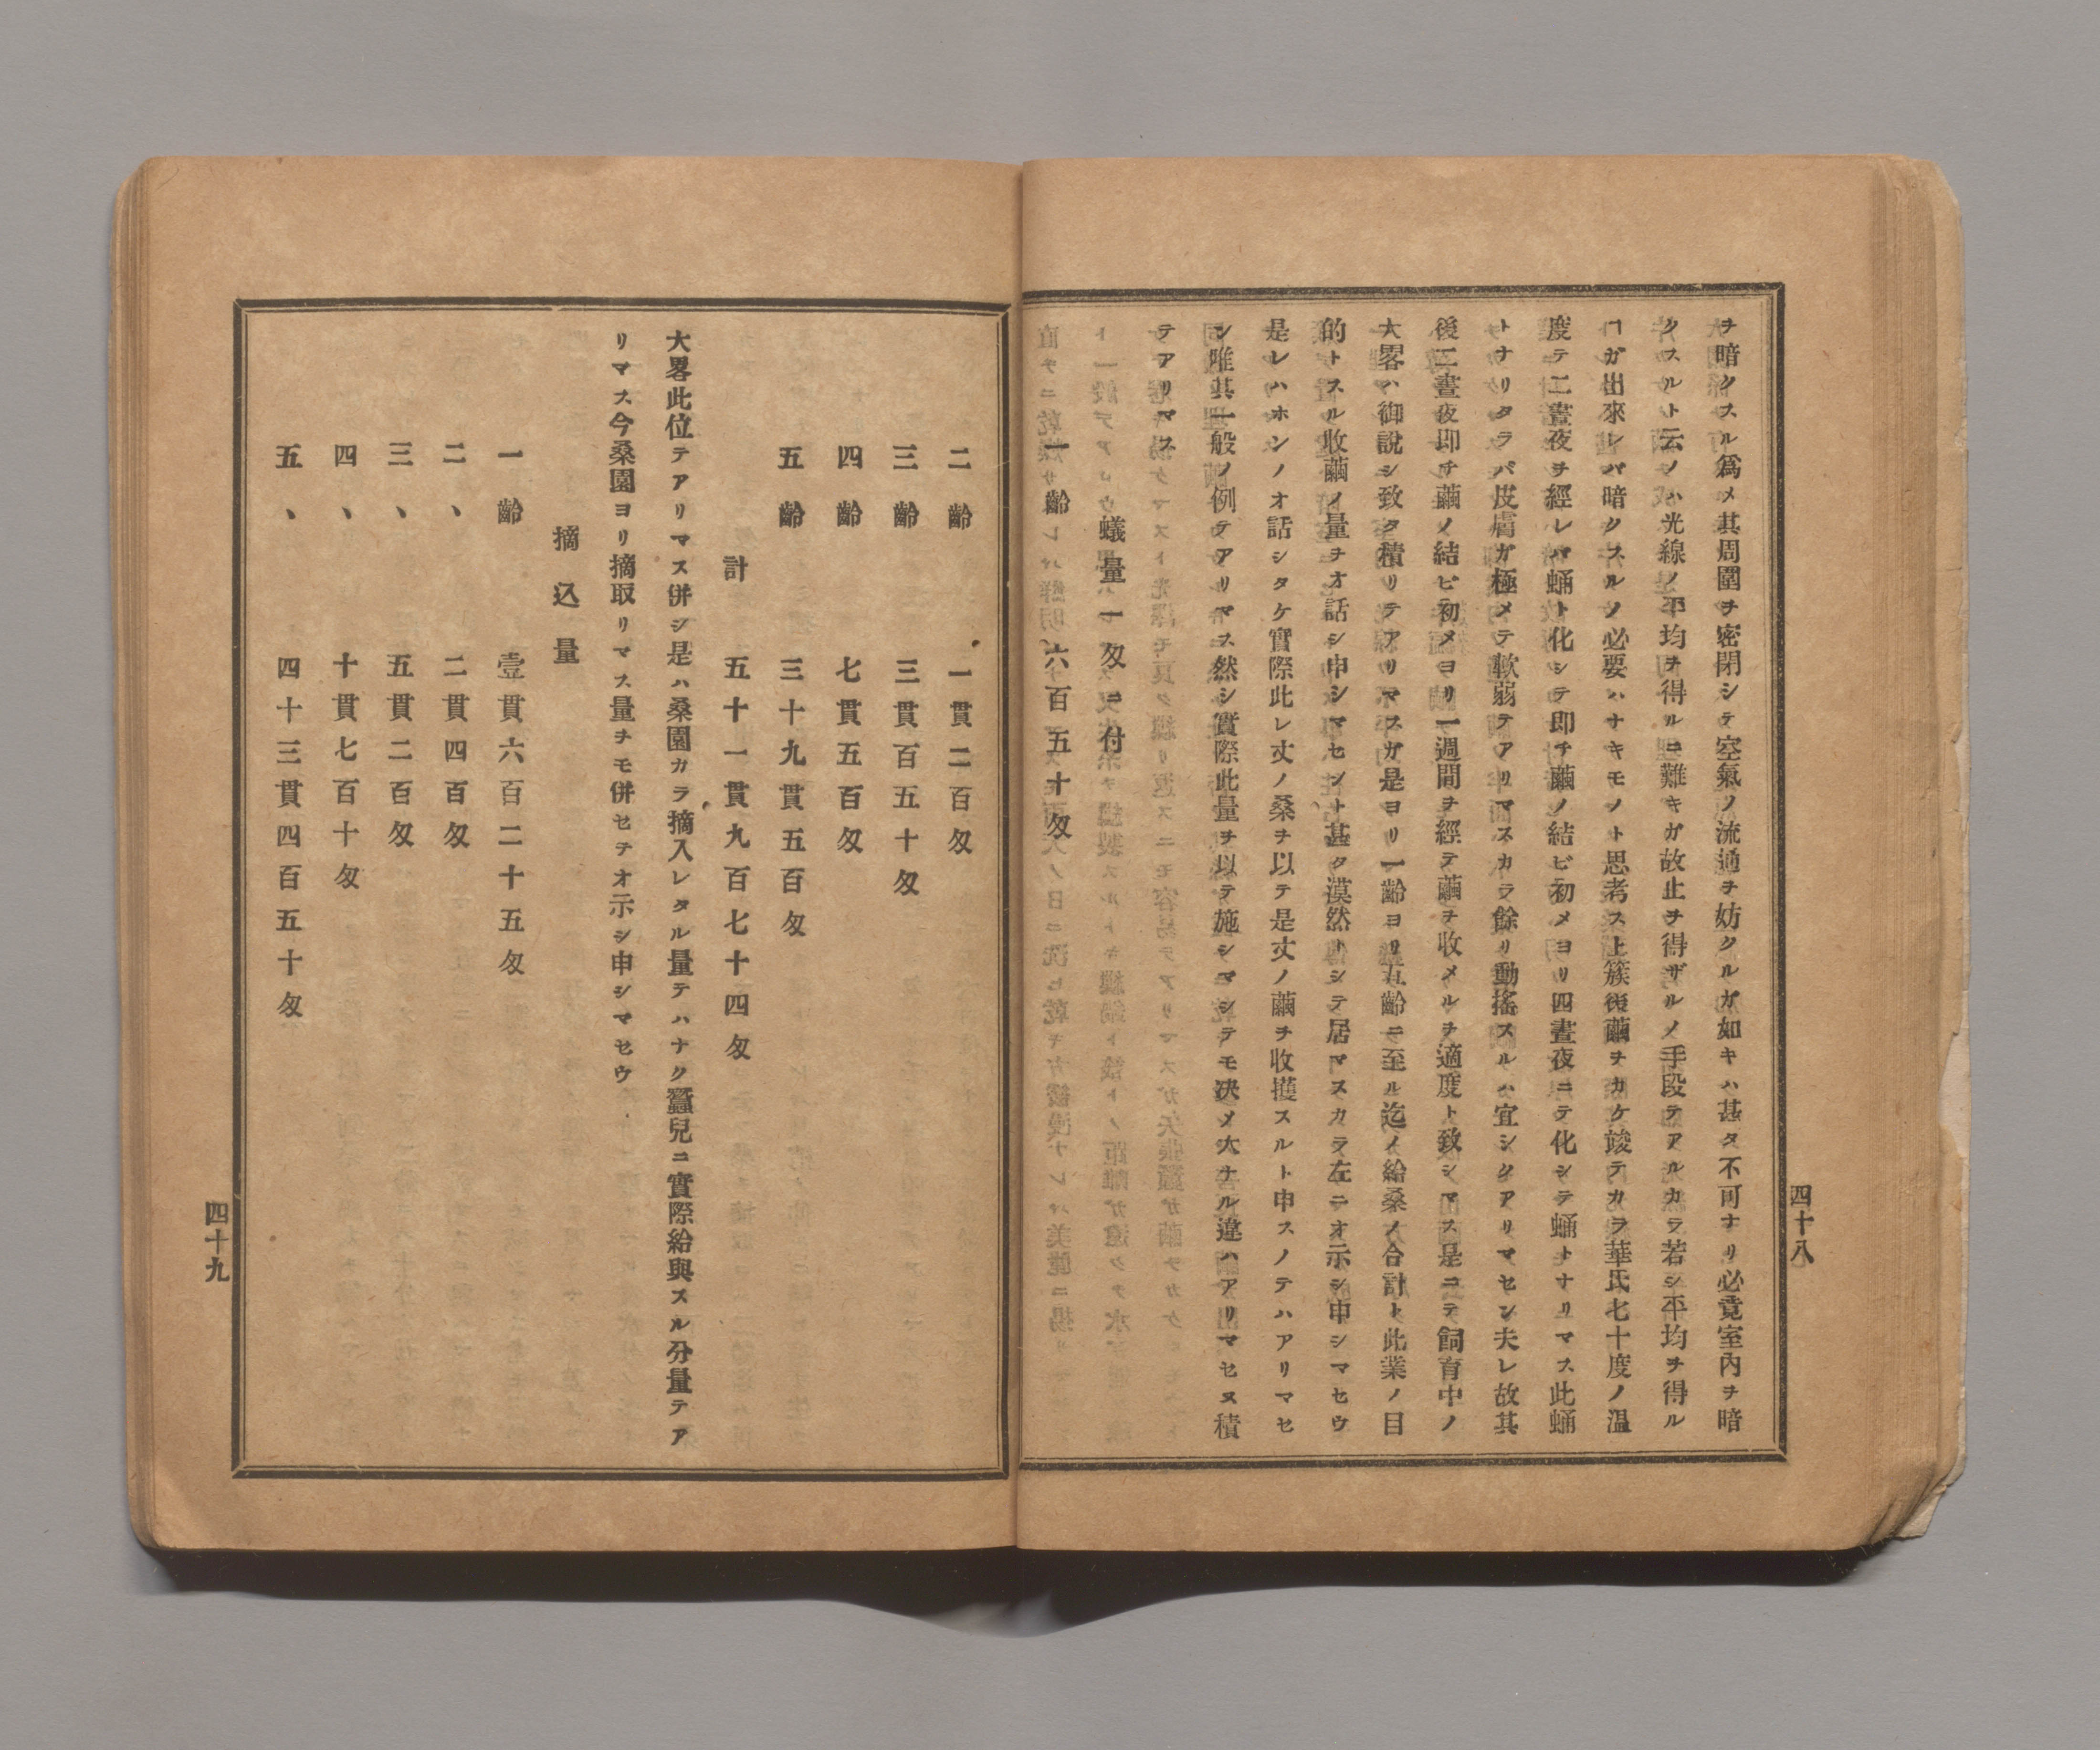 ヲ暗クスル爲メ其周圍ヲ密閉シテ空氣ノ流通ヲ妨クルガ如キハ甚タ不可ナリ必竟室内ヲ暗
クスルト云ノハ光線ノ平均ヲ得ルニ難キガ故止ヲ得ザルノ手段テアルカラ若シ平均ヲ得ル
ヿガ出來レバ暗クスルノ必要ハナキモノト思考ス上簇後繭ヲカケ竣テカラ華氏七十度ノ温
度テ二晝夜ヲ經レバ蛹ト化シテ即チ繭ノ結ビ初メヨリ四晝夜ニテ化シテ蛹トナリマス此蛹
トナリタラバ皮膚ガ極メテ軟弱テアリマスカラ餘リ動搖スルハ宜シクアリマセン夫レ故其
後二晝夜即チ繭ノ結ビ初メヨリ一週間ヲ經テ繭ヲ收メルヲ適度ト致シマス是ニテ飼育中ノ
大畧ハ御説シ致タ積リテアリマスガ是ヨリ一齡ヨリ五齡ニ至ル迄ノ給桑ノ合計ト此業ノ目
的トスル收繭ノ量ヲオ話シ申シマセント甚ク漠然トシテ居マスカラ左ニオ示シ申シマセウ
是レハホンノオ話シタケ實際此レ丈ノ桑ヲ以テ是丈ノ繭ヲ收擭スルト申スノテハアリマセ
ン唯其一般ノ例テアリマス然シ實際此量ヲ以テ施シマシテモ決メ大ナル違ハアリマセヌ積
テアリマス
蟻量一匁ニ付
一齡 六百五十匁
四十八
二齡 一貫二百匁
三齡 三貫百五十匁
四齡 七貫五百匁
五齡 三十九貫五百匁
計 五十一貫九百七十四匁
大畧此位テアリマス併シ是ハ桑園カラ摘入レタル量テハナク蠶兒ニ實際給與スル分量テア
リマス今桑園ヨリ摘取リマス量ヲモ併セテオ示シ申シマセウ
摘込量
一齡 壹貫六百二十五匁
二、 二貫四百匁
三、 五貫二百匁
四、 十貫七百十匁
五、 四十三貫四百五十匁
四十九